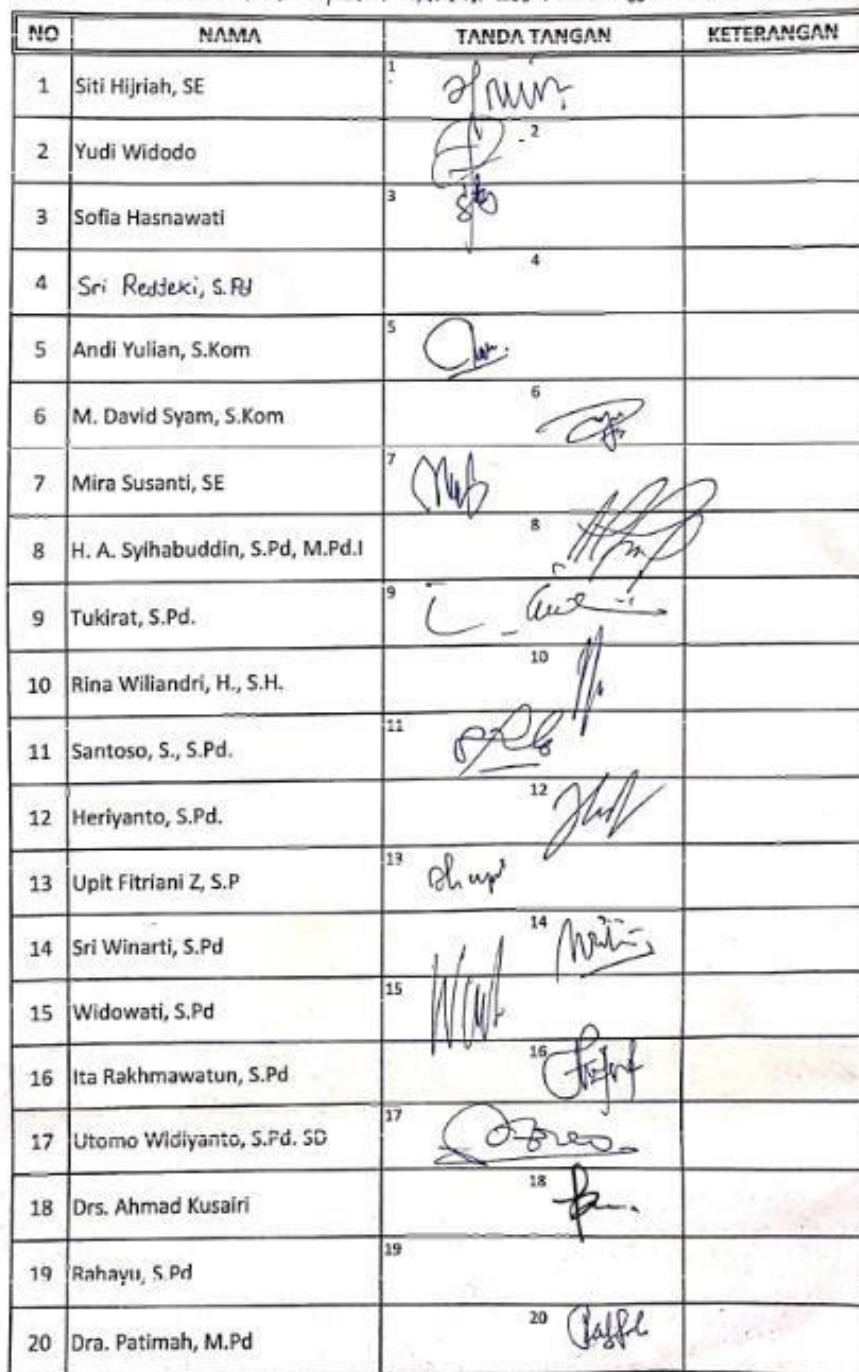 NO NAMA TANDA TANGAN KETERANGAN
1 Siti Hijriah, SE 1
2 Yudi Widodo 2
3 Sofia Hasnawati 3
4 Sri Redjeki, S.Pd 4
5 Andi Yulian, S.Kom 5
6 M. David Syam, S.Kom 6
7 Mira Susanti, SE 7
8 H. A. Syihabuddin, S.Pd, M.Pd.I 8
9 Tukirat, S.Pd. 9
10 Rina Wiliandri, H., S.H. 10
11 Santoso, S., S.Pd. 11
12 Heriyanto, S.Pd. 12
13 Upit Fitriani Z, S.P 13
14 Sri Winarti, S.Pd 14
15 Widowati, S.Pd 15
16 Ita Rakhmawatun, S.Pd 16
17 Utomo Widiyanto, S.Pd. SD 17
18 Drs. Ahmad Kusairi 18
19 Rahayu, S.Pd 19
20 Dra. Patimah, M.Pd 20